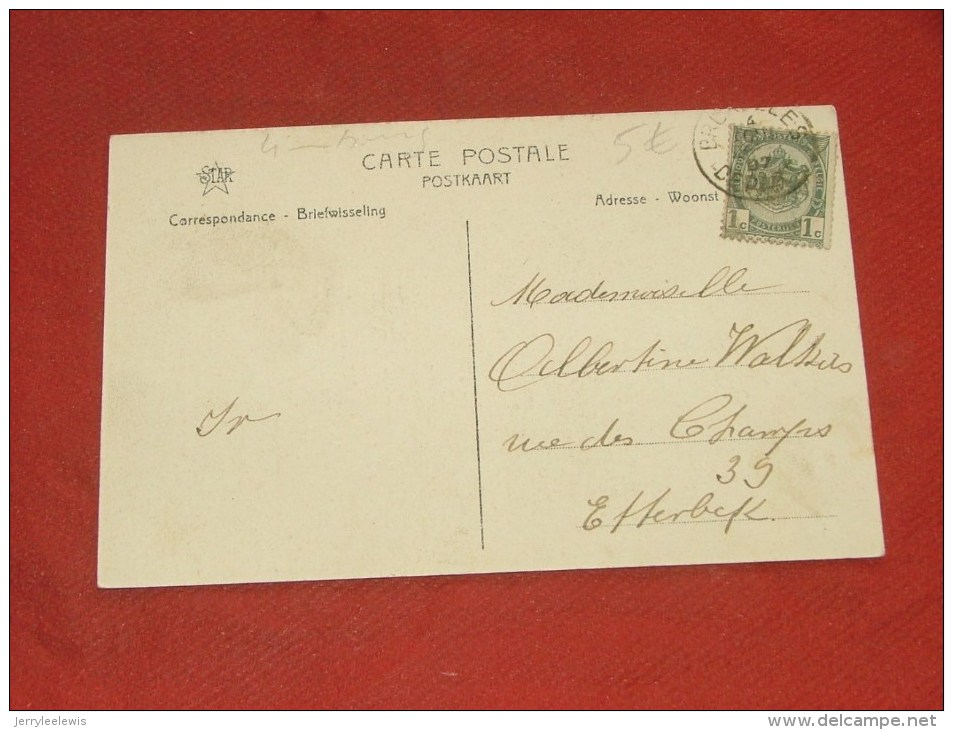 Limburg
5€
STAR
CARTE POSTALE
POSTKAART
Correspondance - Briefwisseling
Adresse - Woonst
BRUXELLES
07
1c 1c
Mademoiselle
Albertine Walkers
rue des Champs
39
Etterbeek.
Jr
jerryleelewis
delcampe.net